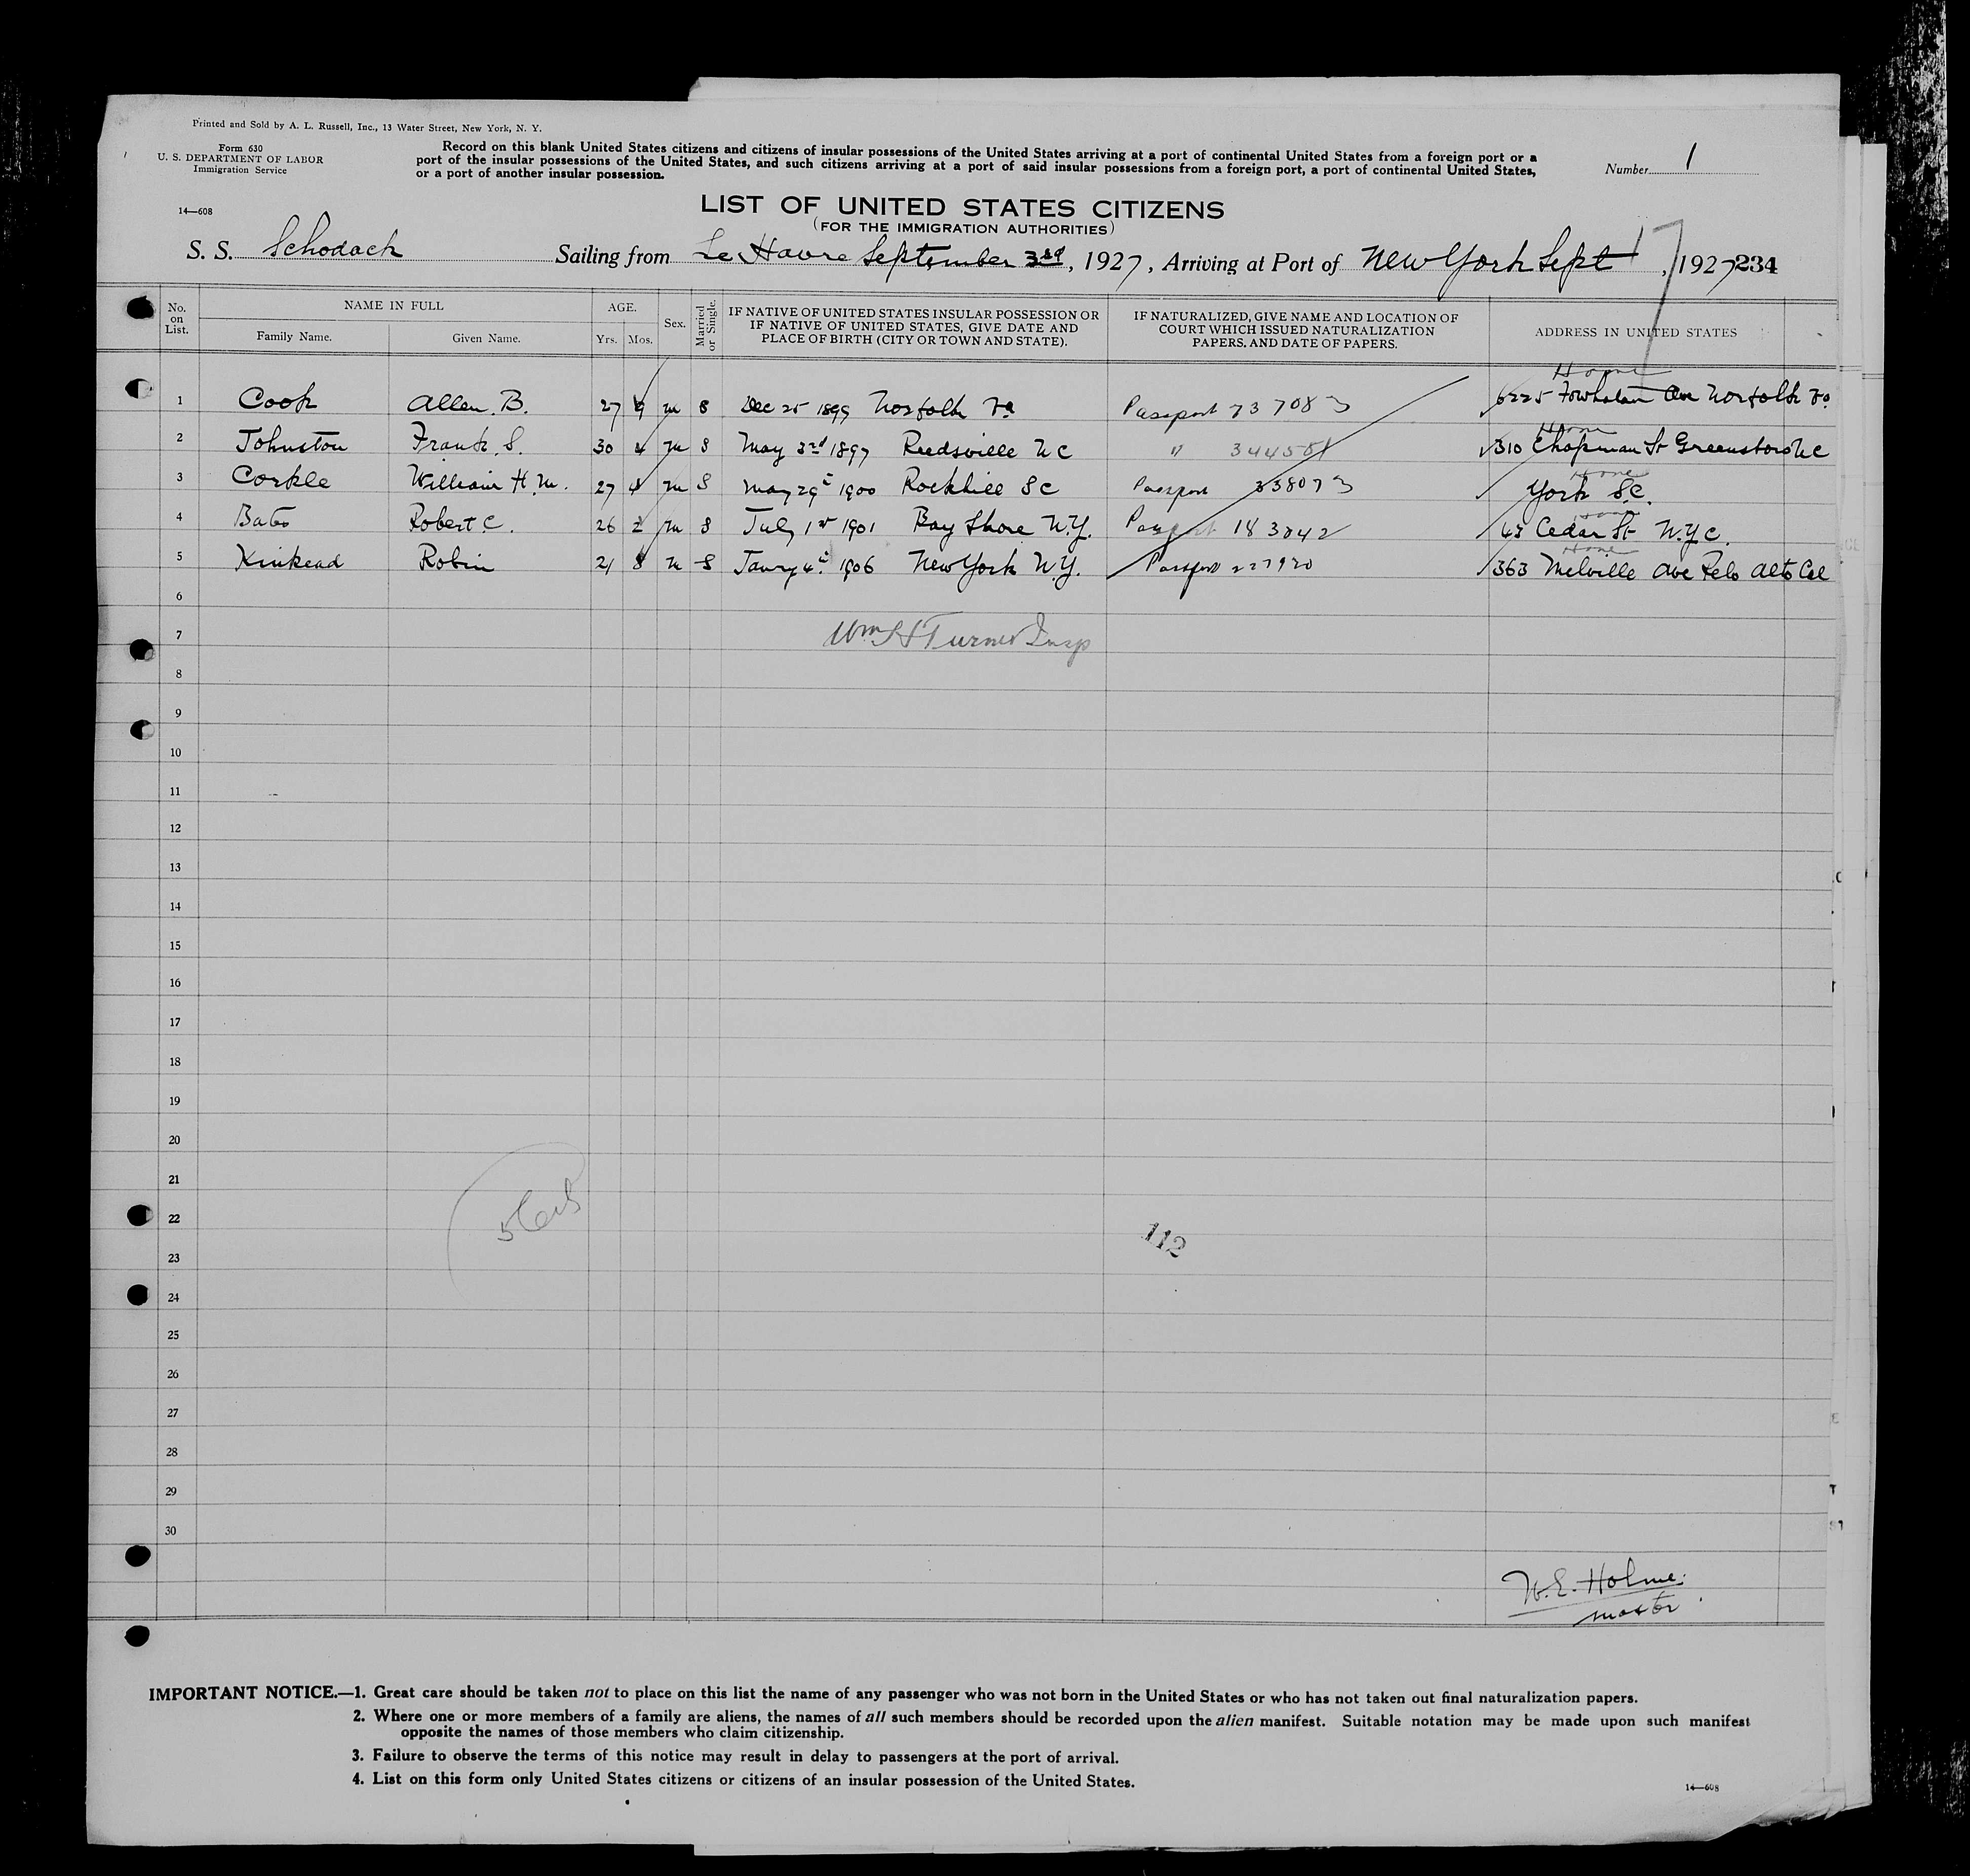 Printed and Sold by A. L. Russell, Inc., 13 Water Street, New York, N. Y.
Form 630
U. S. DEPARTMENT OF LABOR
Immigration Service
Record on this blank United States citizens and citizens of insular possessions of the United States arriving at a port of continental United States from a foreign port or a
port of the insular possessions of the United States, and such citizens arriving at a port of said insular possessions from a foreign port, a port of continental United States,
or a port of another insular possession.
Number 1
14—608
LIST OF UNITED STATES CITIZENS
(FOR THE IMMIGRATION AUTHORITIES)
S. S. Schodack Sailing from Le Havre September 3rd, 1927, Arriving at Port of New York Sept 17, 1927 234
No. on List. NAME IN FULL AGE. Sex. Married or Single. IF NATIVE OF UNITED STATES INSULAR POSSESSION OR IF NATIVE OF UNITED STATES, GIVE DATE AND PLACE OF BIRTH (CITY OR TOWN AND STATE). IF NATURALIZED, GIVE NAME AND LOCATION OF COURT WHICH ISSUED NATURALIZATION PAPERS, AND DATE OF PAPERS. ADDRESS IN UNITED STATES
Family Name. Given Name. Yrs. Mos.
Home
1 Cook Allen. B. 27 m S Dec 25 1899 Norfolk Va Passport 73 708 6225 Powhatan Ave Norfolk Va.
Home
2 Johnston Frank. S. 30 4 m S May 3rd 1897 Reedsville NC " 344581 310 Chapman St Greensboro NC
Home
3 Corkle William H. M. 27 m S May 29 1900 Rockhill SC Passport York S.C.
Home
4 Bates Robert C. 26 2 m S July 1st 1901 Bay Shore N.Y. Passport 183042 43 Cedar St N.Y.C.
Home
5 Kinkead Robin 21 8 m S Janry 4 1906 New York N.Y. Passport 227920 363 Melville Ave Palo Alto Cal
6
7 Wm H Turner Insp
8
9
10
11
12
13
14
15
16
17
18
19
20
21
22
112
23
24
25
26
27
28
29
30
W. E. Holme.
master
IMPORTANT NOTICE.—1. Great care should be taken not to place on this list the name of any passenger who was not born in the United States or who has not taken out final naturalization papers.
2. Where one or more members of a family are aliens, the names of all such members should be recorded upon the alien manifest. Suitable notation may be made upon such manifest
opposite the names of those members who claim citizenship.
3. Failure to observe the terms of this notice may result in delay to passengers at the port of arrival.
4. List on this form only United States citizens or citizens of an insular possession of the United States.
14—608